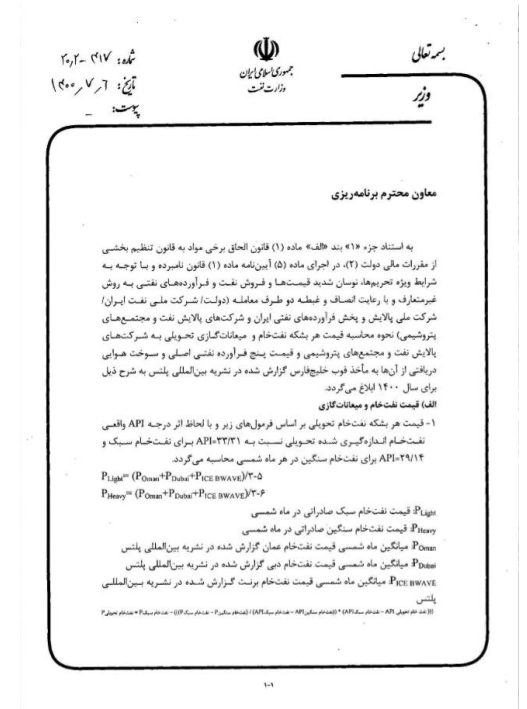 بسمه تعالی
جمهوری اسلامی ایران
وزارت نفت
وزیر
شماره: ۴۱۷–۲۰٫۲
تاریخ: ۱۴۰۰٫۷٫۶
پیوست: –
معاون محترم برنامه‌ریزی
به استناد جزء «۱» بند «الف» ماده (۱) قانون الحاق برخی مواد به قانون تنظیم بخشی
از مقررات مالی دولت (۲)، در اجرای ماده (۵) آیین‌نامه ماده (۱) قانون نامبرده و با توجه به
شرایط ویژه تحریم‌ها، نوسان شدید قیمت‌ها و فروش نفت و فرآورده‌های نفتی به روش
غیرمتعارف و با رعایت انصاف و غبطه دو طرف معامله (دولت/ شرکت ملی نفت ایران/
شرکت ملی پالایش و پخش فرآورده‌های نفتی ایران و شرکت‌های پالایش نفت و مجتمع‌های
پتروشیمی) نحوه محاسبه قیمت هر بشکه نفت‌خام و میعانات‌گازی تحویلی به شرکت‌های
پالایش نفت و مجتمع‌های پتروشیمی و قیمت پنج فرآورده نفتی اصلی و سوخت هوایی
دریافتی از آن‌ها به مأخذ فوب خلیج‌فارس گزارش شده در نشریه بین‌المللی پلتس به شرح ذیل
برای سال ۱۴۰۰ ابلاغ می‌گردد.
الف) قیمت نفت‌خام و میعانات‌گازی
۱- قیمت هر بشکه نفت‌خام تحویلی بر اساس فرمول‌های زیر و با لحاظ اثر درجه API واقعی
نفت‌خام اندازه‌گیری شده تحویلی نسبت به API=۳۳/۳۱ برای نفت‌خام سبک و
API=۲۹/۱۴ برای نفت‌خام سنگین در هر ماه شمسی محاسبه می‌گردد.
P_Light= (P_Oman+P_Dubai+P_ICE BWAVE)/۳-۵
P_Heavy= (P_Oman+P_Dubai+P_ICE BWAVE)/۳-۶
P_Light: قیمت نفت‌خام سبک صادراتی در ماه شمسی
P_Heavy: قیمت نفت‌خام سنگین صادراتی در ماه شمسی
P_Oman: میانگین ماه شمسی قیمت نفت‌خام عمان گزارش شده در نشریه بین‌المللی پلتس
P_Dubai: میانگین ماه شمسی قیمت نفت‌خام دبی گزارش شده در نشریه بین‌المللی پلتس
P_ICE BWAVE: میانگین ماه شمسی قیمت نفت‌خام برنت گزارش شده در نشریه بین‌المللی
پلتس
۱-۱